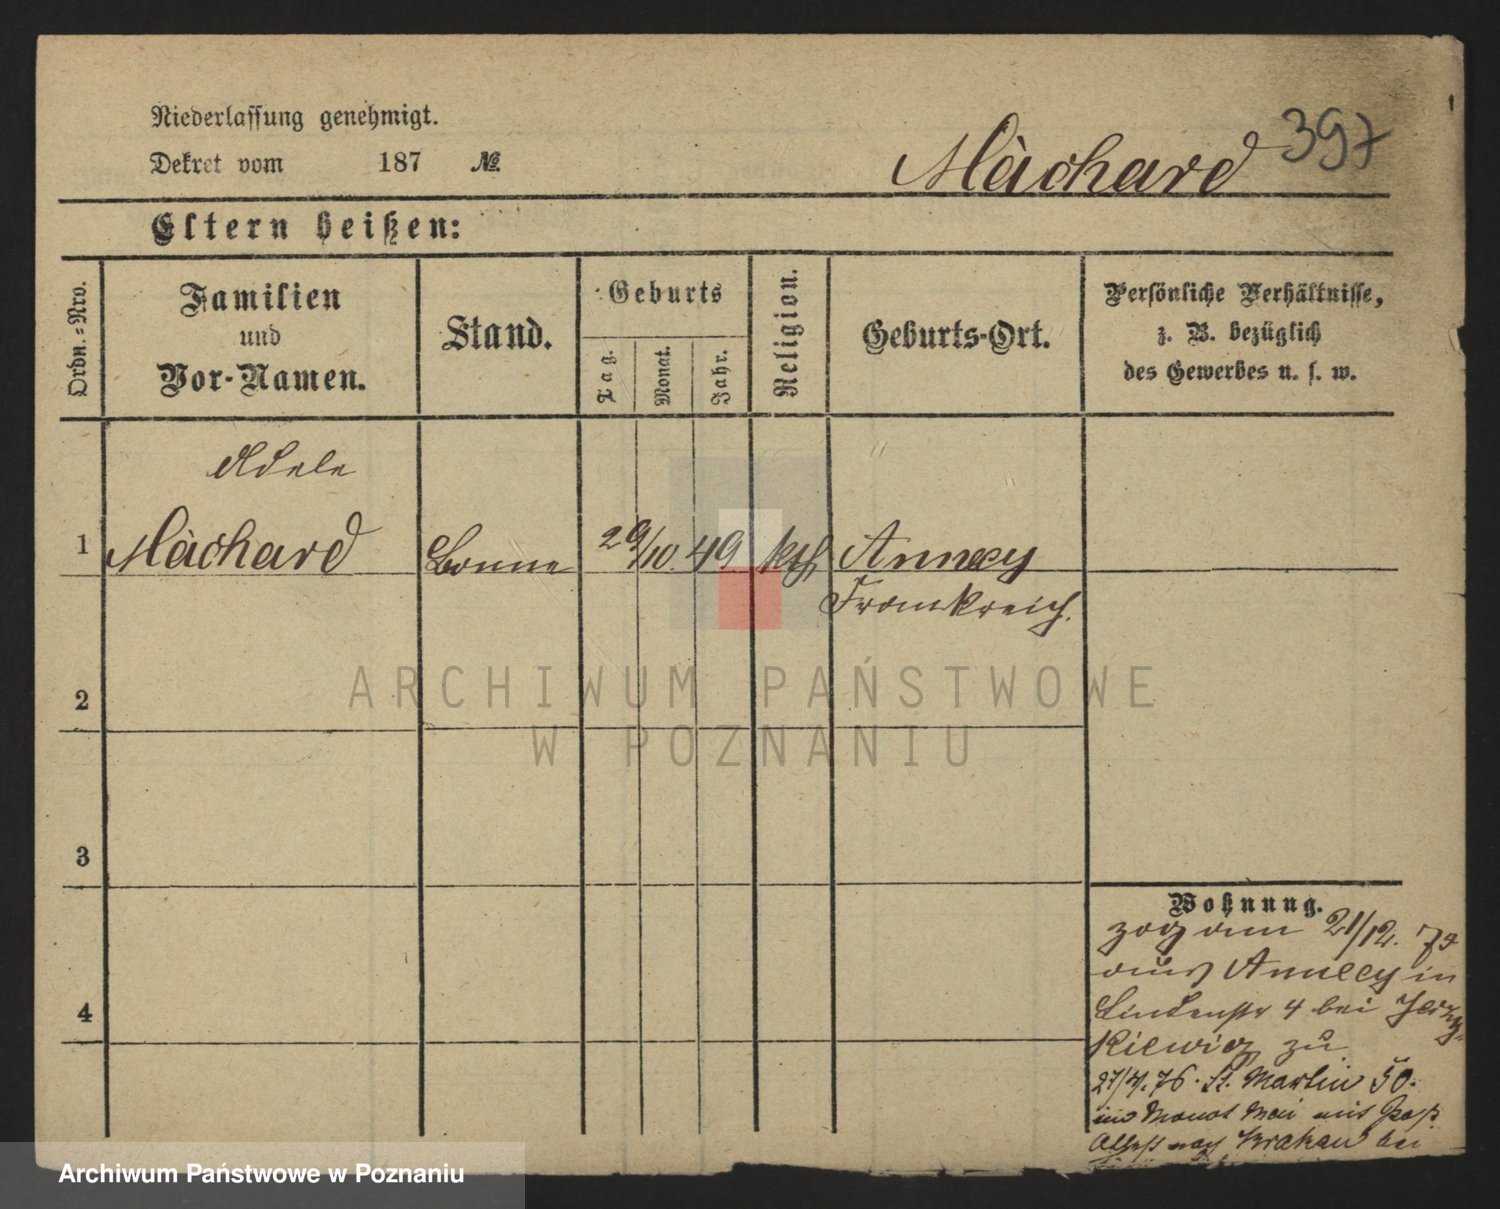 Niederlassung genehmigt.
Dekret vom 187 №
Màchard 397
Eltern heißen:
Ordn.-Nro.
Familien
und
Vor-Namen.
Stand.
Geburts
Tag.
Monat.
Jahr.
Religion.
Geburts-Ort.
Persönliche Verhältnisse,
z. B. bezüglich
des Gewerbes u. s. w.
Adele
1 Màchard Bonne 29/10. 49 kth Annecy
Frankreich.
2
3
4
Wohnung.
zog am 21/12. 74
aus Annecy in
Lindenstr 4 bei
zu
27/4. 76. St. Martin 50.
im Monat Mai mit
nach Krakau bei
ARCHIWUM PAŃSTWOWE
W POZNANIU
Archiwum Państwowe w Poznaniu